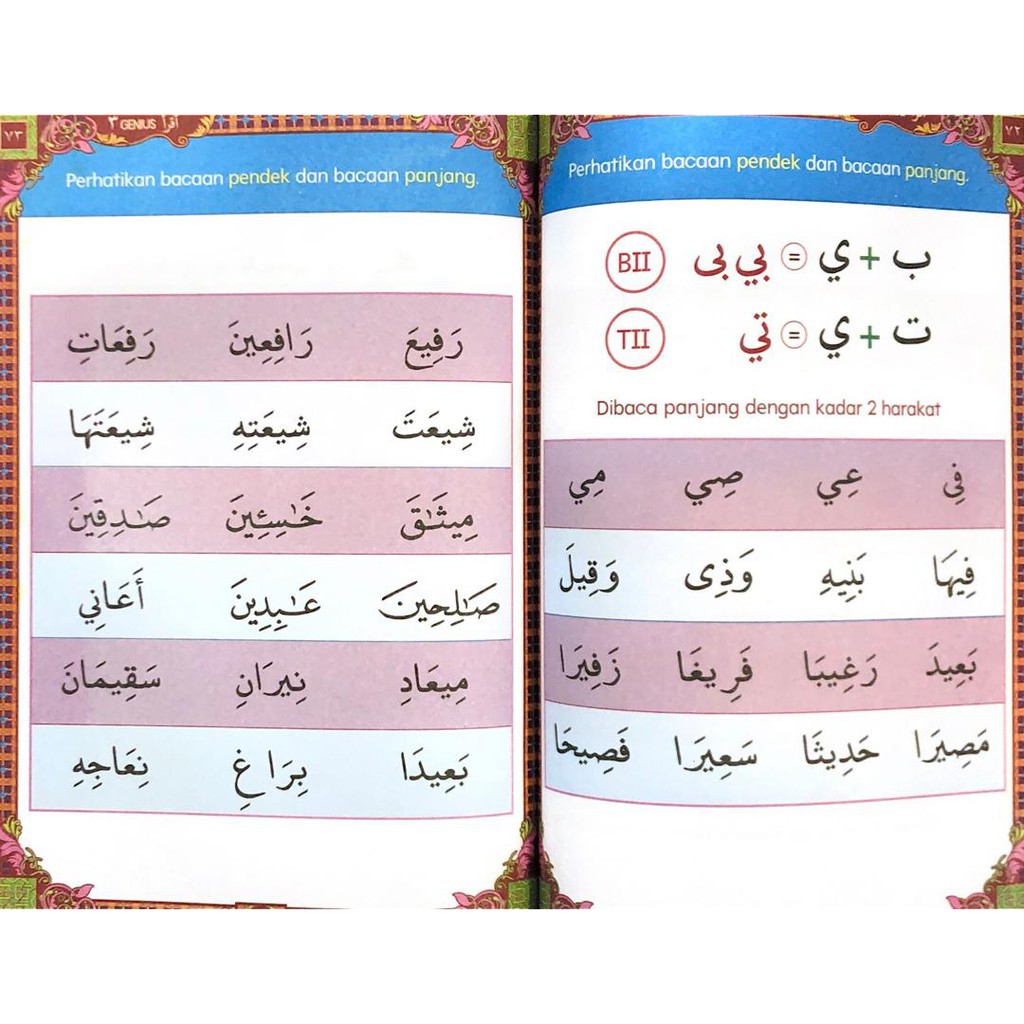 ٧٢
Perhatikan bacaan pendek dan bacaan panjang.
ب + ي = بي بى BII
ت + ي = تي TII
Dibaca panjang dengan kadar 2 harakat
فِى عِي صِي مِي
فِيهَا بَنِيهِ وَذِى وَقِيلَ
بَعِيدَ رَغِيبَا فَرِيغَا زَفِيرَا
مَصِيرَا حَدِيثَا سَعِيرَا فَصِيحَا
اقرأ GENIUS ٣
٧٣
Perhatikan bacaan pendek dan bacaan panjang.
رَفِيعَ رَافِعِينَ رَفِعَاتِ
شِيعَتَ شِيعَتِهِ شِيعَتَهَا
مِيثَـٰقَ خَـٰسِئِينَ صَـٰدِقِينَ
صَـٰلِحِينَ عَـٰبِدِينَ أَعَانِي
مِيعَادِ نِيرَانِ سَقِيمَانَ
بَعِيدَا بِرَاغِ نِعَاجِهِ